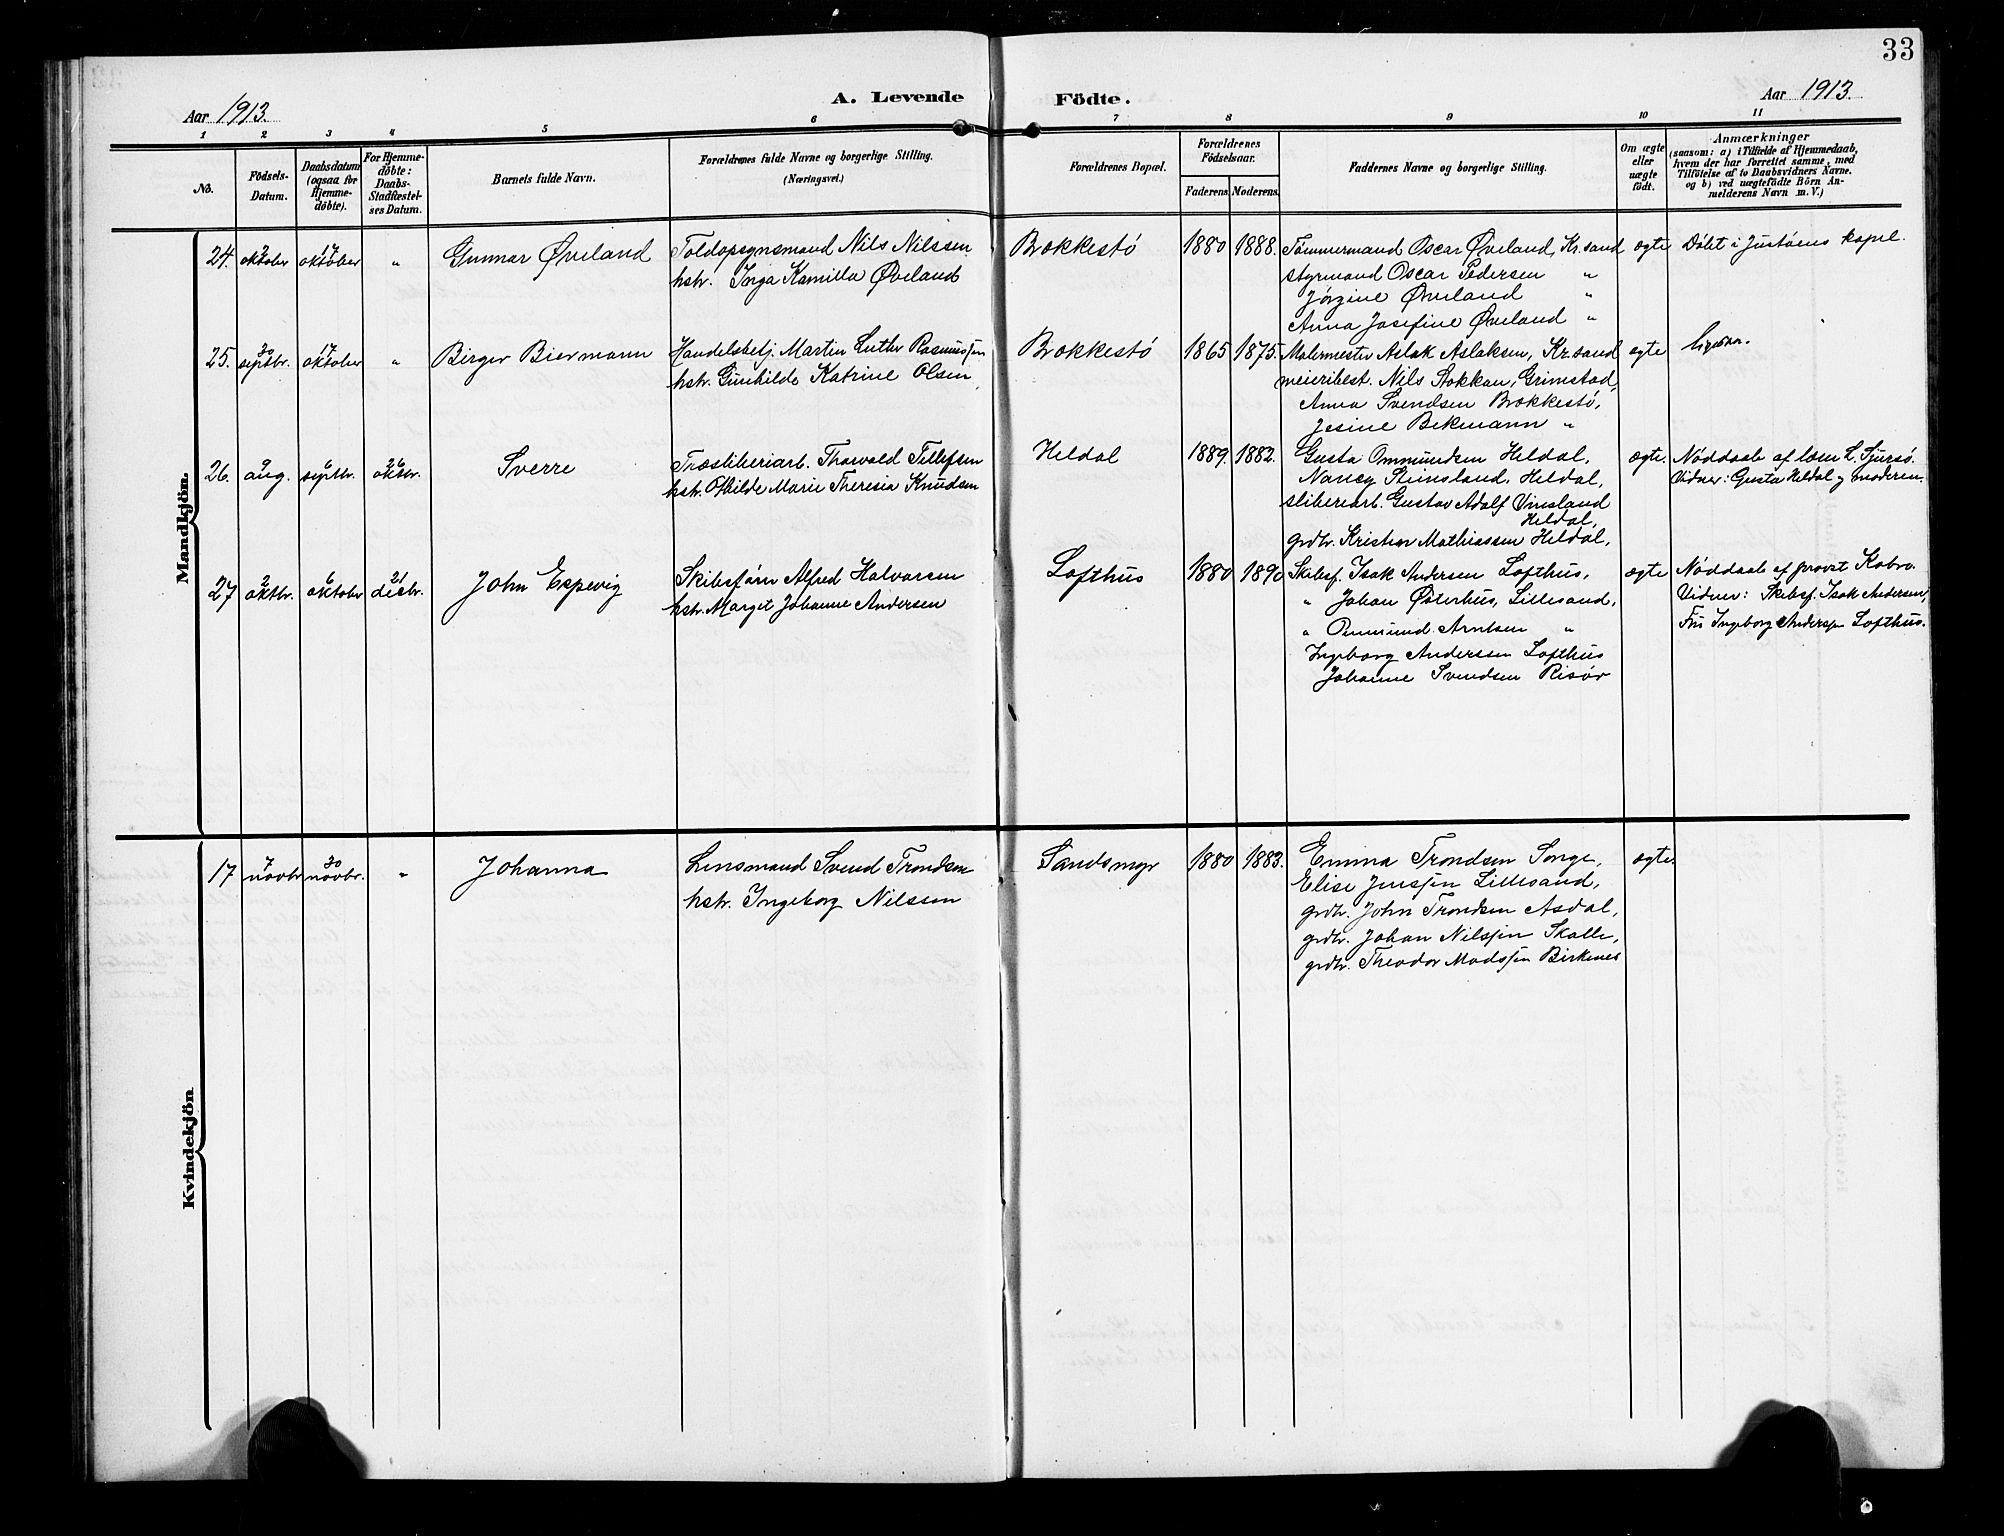 33
Aar 1913.
A. Levende Födte.
Aar 1913.
1 2 3 4 5 6 7 8 9 10 11
No.
Födsels-Datum.
Daabsdatum (ogsaa for Hjemme-döbte).
For Hjemme-döbte: Daabs-Stadfæstel-ses Datum.
Barnets fulde Navn.
Forældrenes fulde Navne og borgerlige Stilling. (Næringsvei.)
Forældrenes Bopæl.
Forældrenes Födselsaar.
Faderens. Moderens.
Faddernes Navne og borgerlige Stilling.
Om ægte eller uægte födt.
Anmærkninger
(saasom: a) i Tilfælde af Hjemmedaab,
hvem der har forrettet samme, med
Tilföielse af to Daabsvidners Navne.
og b) ved uægtefödte Börn An-
melderens Navn m. V.)
Mandkjön.
24. 2 oktober 17 oktober " Gunnar Øveland
Toldopsynsmand Nils Nilssen
hstr. Inga Kamilla Øveland
Brækkestö 1880 1888.
Tømmermand Oscar Øveland, Kr.sand
styrmand Oscar Pedersen "
Jörgine Øveland "
Anna Josefine Øveland "
ægte Döbt i Justöens kapel.
25. 20 septbr. 17 oktober " Birger Biermann
Handelsbetj. Martin Luthr Rasmussen
hstr. Gunhilde Katrine Olsen
Brækkestö 1865 1875.
Malermester Aslak Aslaksen, Kr.sand
meieribest. Nils Stokkan, Grimstad,
Anna Svendsen Brækkestö,
Jesine Bekmann "
ægte ligesaa.
26. 9 aug. septbr. 26 oktbr. Sverre
Træsliberiarb. Thorvald Tellefsen
hstr. Othilde Marie Theresia Knudsen
Heldal 1889. 1882.
Gusta Ommundsen Heldal,
Nancy Heldal,
sliberiarb. Gustav Adolf Vinsland
Heldal,
grdbr. Kristian Mathiassen Heldal,
ægte. Nøddaab af læn L. Sjursö.
Vidner: Gusta Heldal og moderen.
27 2 oktbr. 6 oktober 21 decbr. John Espevig
Skibsförer Alfred Halvorsen
hstr. Margit Johanne Andersen
Lofthus 1880 1890
Skibsf. Isak Andersen Lofthus,
" Johan Østerhus, Lillesand,
" Ommund Arntsen "
Ingeborg Anderssen Lofthus
Johanne Svendsen Risør
ægte Nøddaab af provst Kobro.
Vidner: Skibsf. Isak Andersen,
Fru Ingeborg Andersen Lofthus.
Kvindekjön
17 7 novbr 30 novbr. " Johanna
Lensmand Svend Trondsen
hstr. Ingeborg Nilssen
Sandsmyr 1880 1883.
Emma Trondsen Songe,
Elise Jenssen Lillesand,
grdbr. John Trondsen Asdal,
grdbr. Johan Nilssen Skalle,
grdbr. Theodor Madssen Birkenes
ægte.